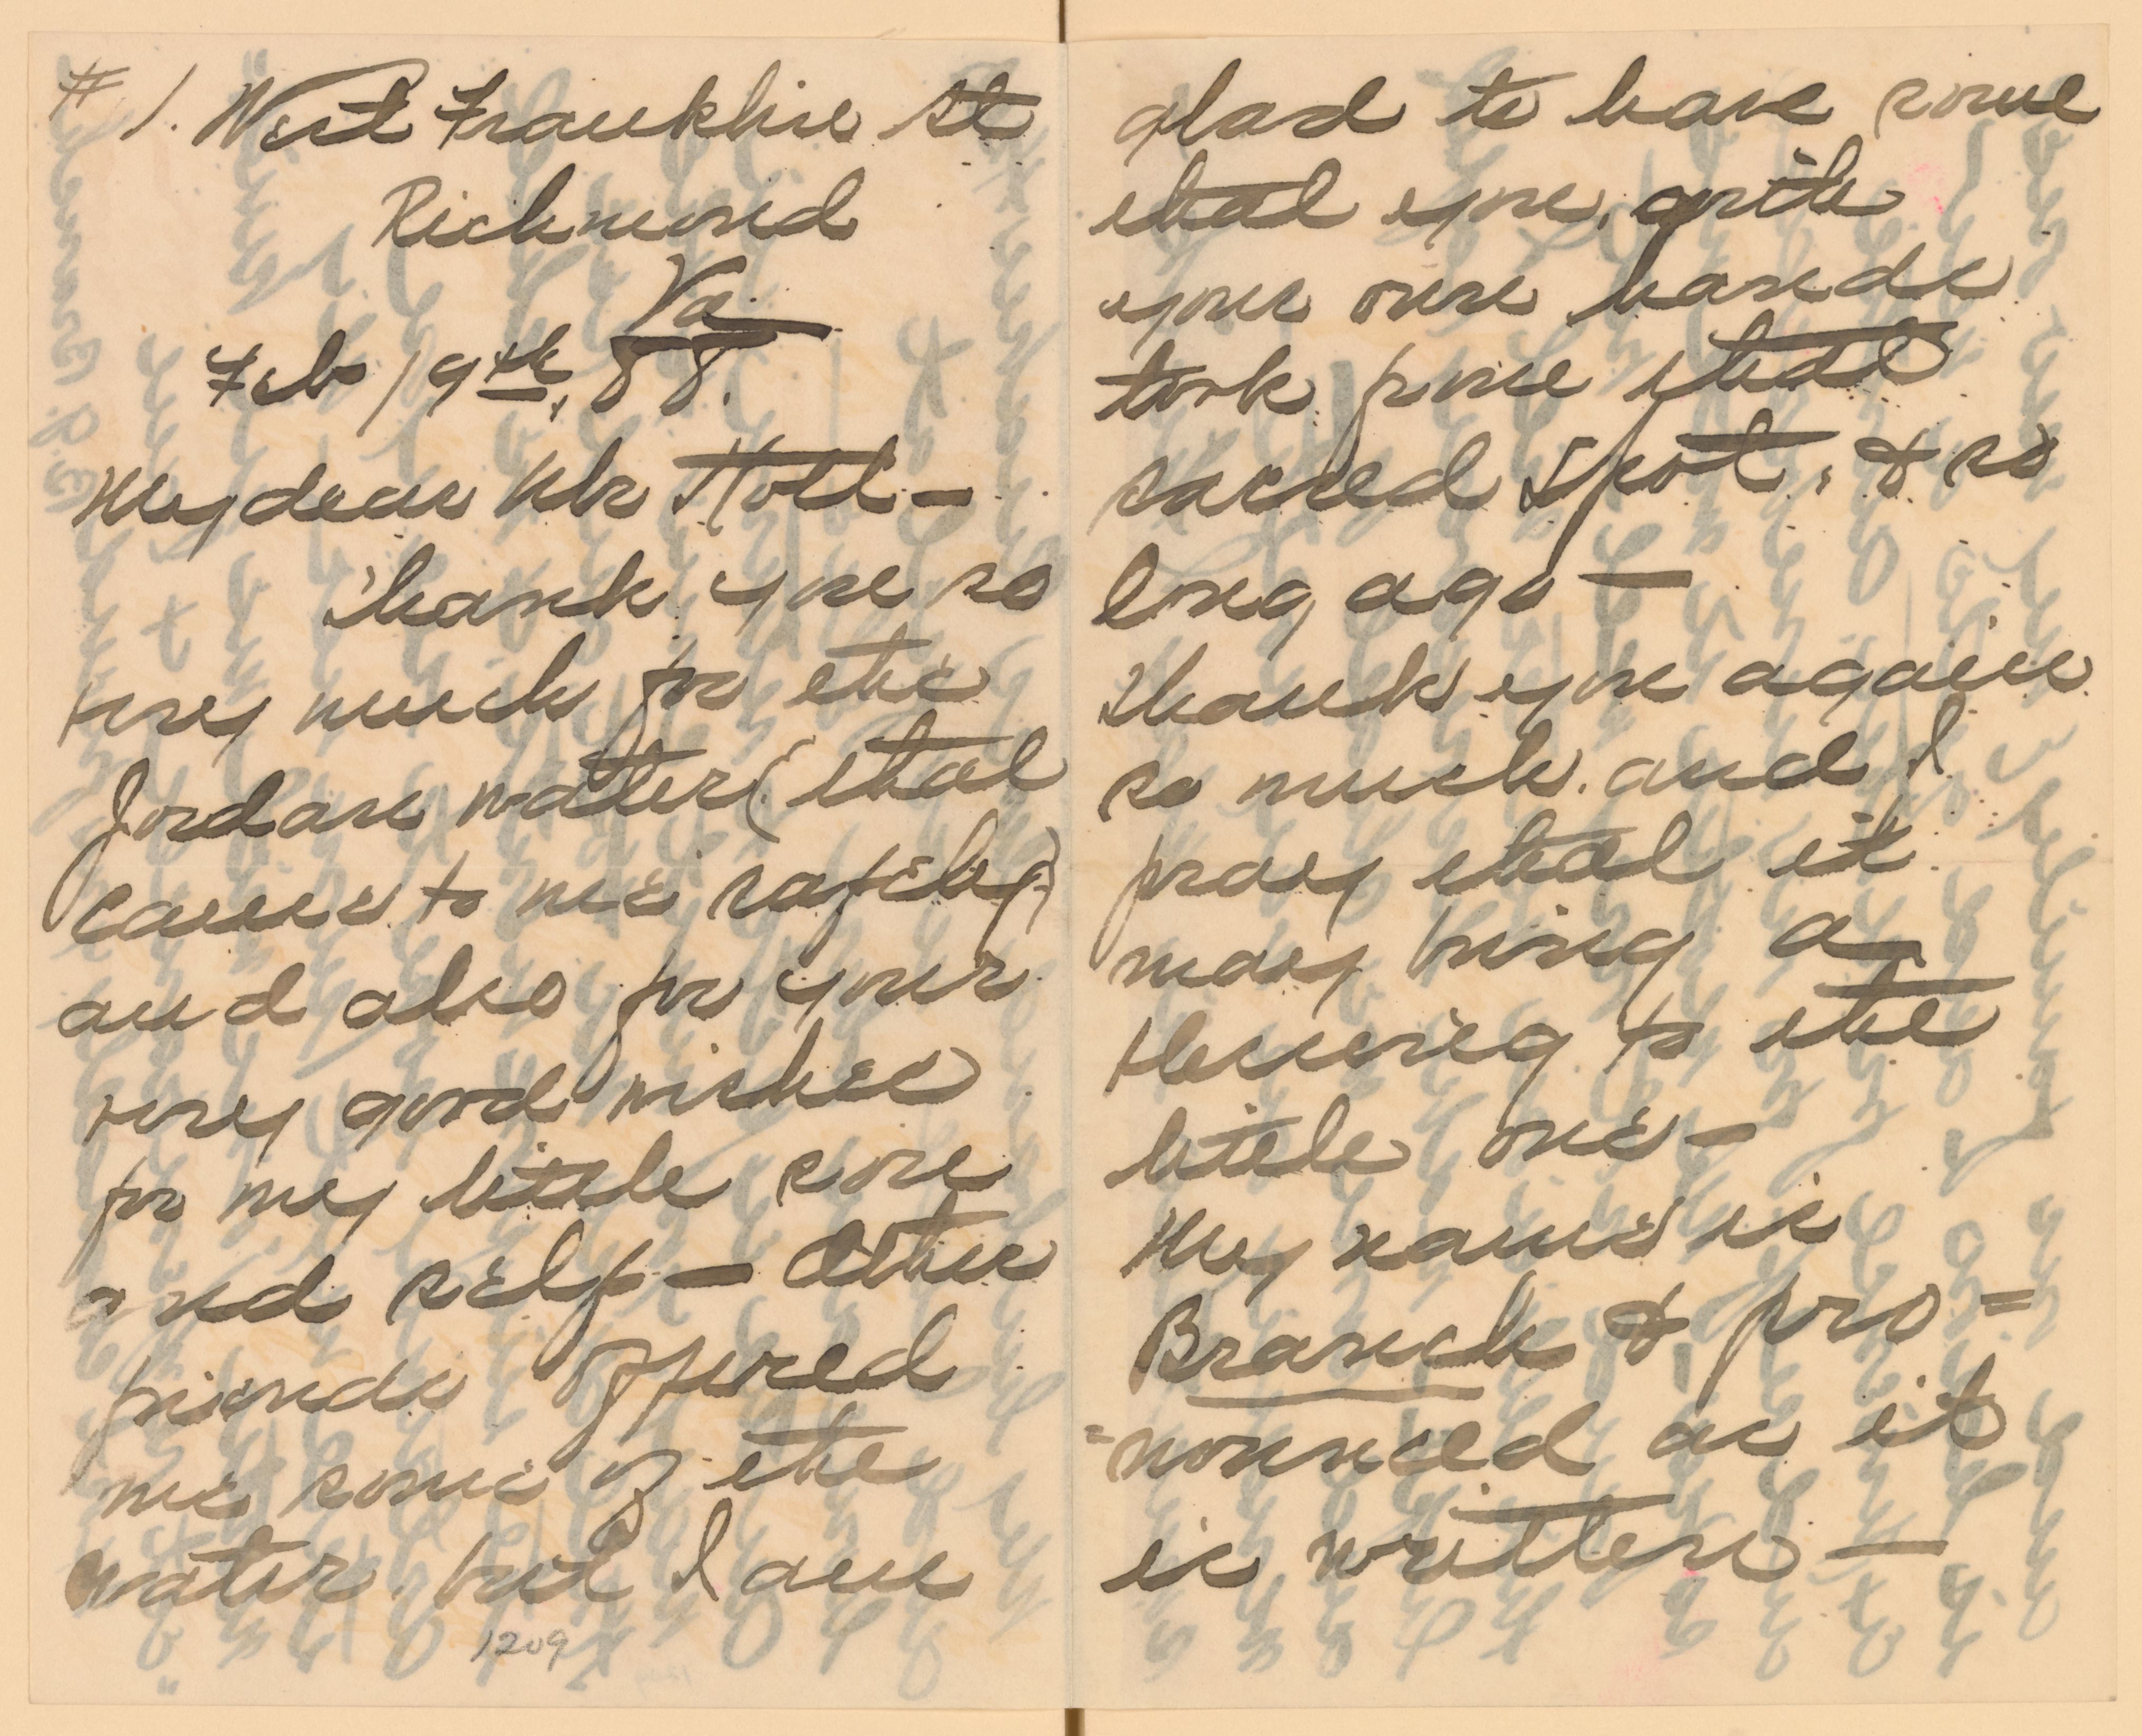 # 1. West Franklin St
Richmond
Va
Feb 19th, 88.
My dear Mr Holt —
Thank you so
very much for the
Jordan water (that
came to me safely)
and also for your
very good wishes
for my little son
and self — Other
friends offered
me some of the
water. but I am
1209
glad to have some
that you, with
your own hands
took from that
sacred spot, & so
long ago —
Thank you again
so much. and I
pray that it
may bring a
blessing to the
little one —
My name is
Branch & pro=
=nounced as it
is written —